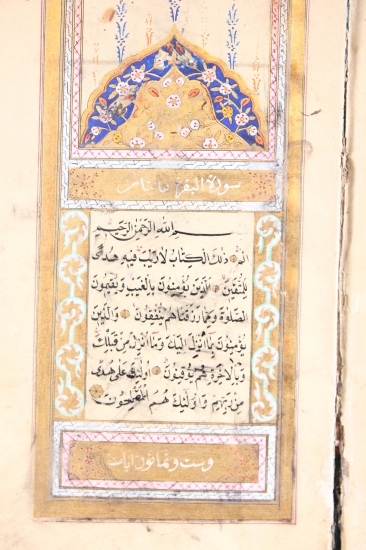 سورة البقرة مائتان
بسم الله الرحمن الرحيم
الم ذلك الكتاب لا ريب فيه هدى
للمتقين الذين يؤمنون بالغيب ويقيمون
الصلوة ومما رزقناهم ينفقون والذين
يؤمنون بما انزل اليك وما انزل من قبلك
وبالاخرة هم يوقنون اولئك على هدى
من ربهم واولئك هم المفلحون
وست وثمانون ايات